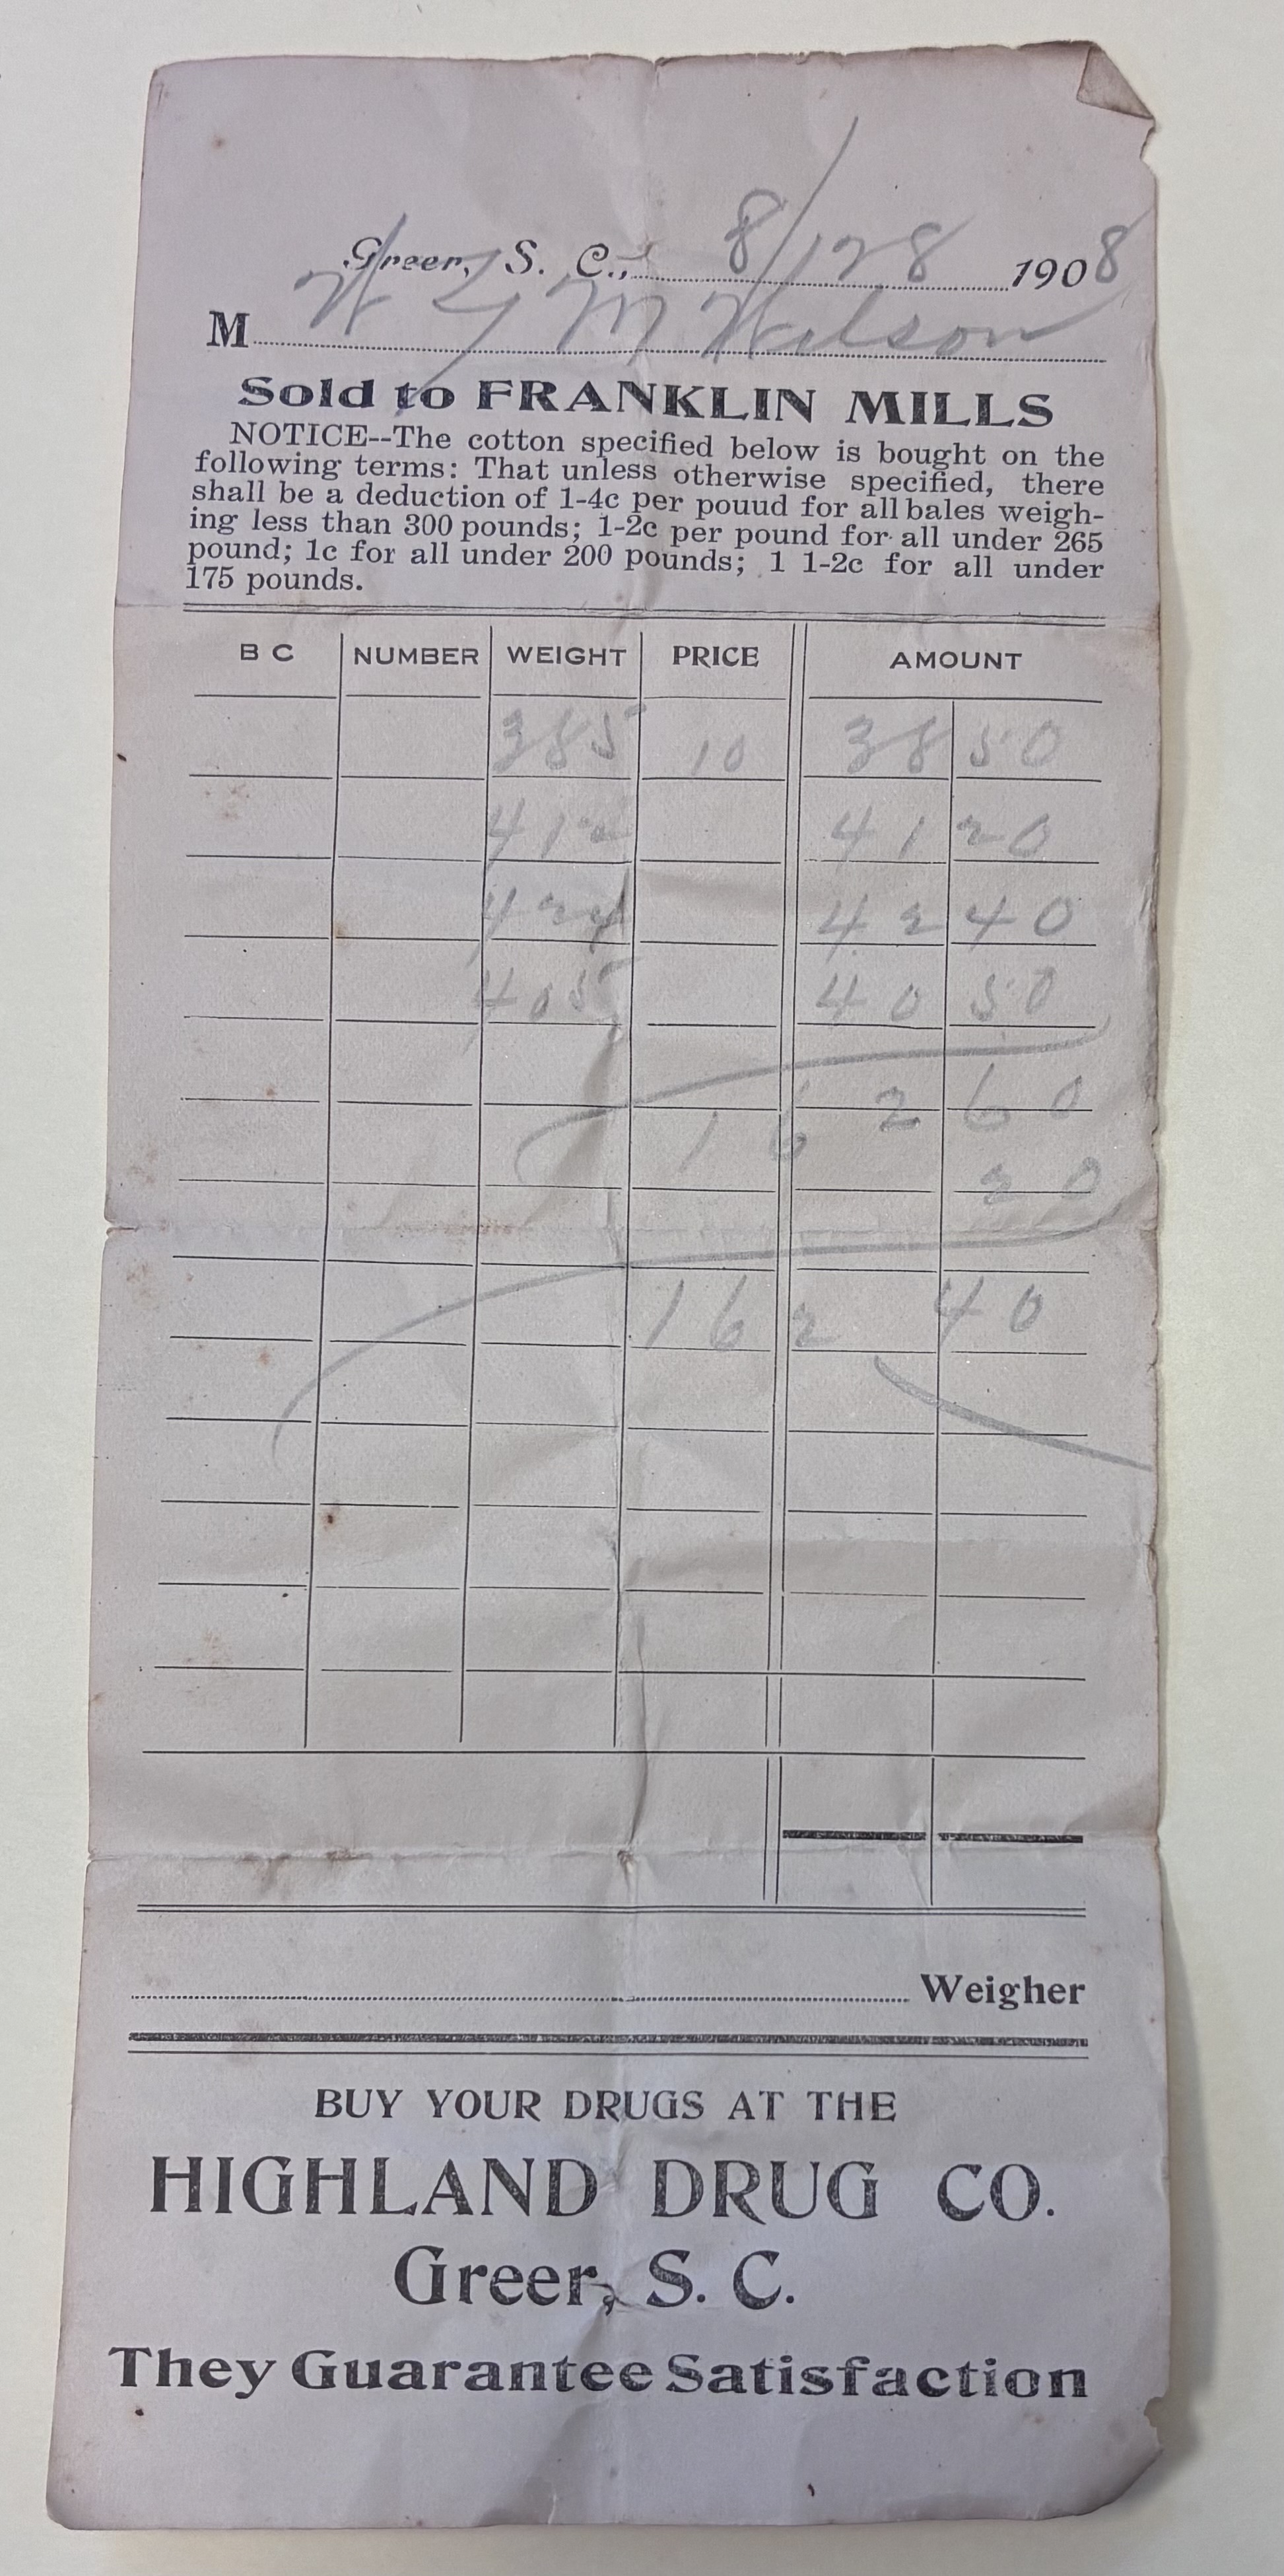 Greer, S. C., 8/28 1908
M W Y M Wilson
Sold to FRANKLIN MILLS
NOTICE--The cotton specified below is bought on the
following terms: That unless otherwise specified, there
shall be a deduction of 1-4c per pouud for all bales weigh-
ing less than 300 pounds; 1-2c per pound for all under 265
pound; 1c for all under 200 pounds; 1 1-2c for all under
175 pounds.
B C NUMBER WEIGHT PRICE AMOUNT
385 10 38 50
412 41 20
424 42 40
405 40 50
162 60
20
162 40
Weigher
BUY YOUR DRUGS AT THE
HIGHLAND DRUG CO.
Greer, S. C.
They Guarantee Satisfaction